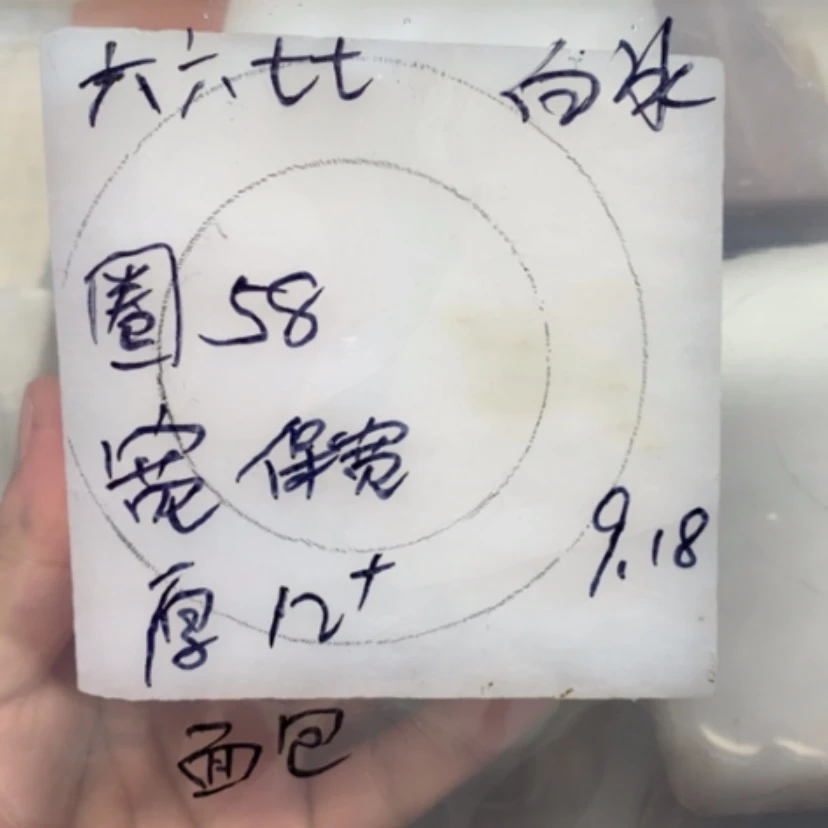 六六七七 向冰
圈 58
宽 保宽
9.18
厚 12+
面包